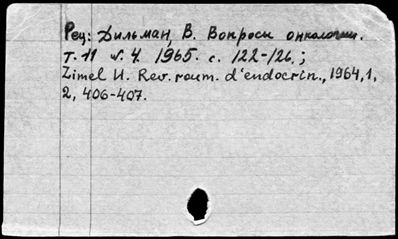 Рец: Дильман, В. Вопросы онкологии.
т. 11 №. 4. 1965. с. 122-126.;
Zimel H. Rev. roum. d'endocrin., 1964, 1,
2, 406-407.